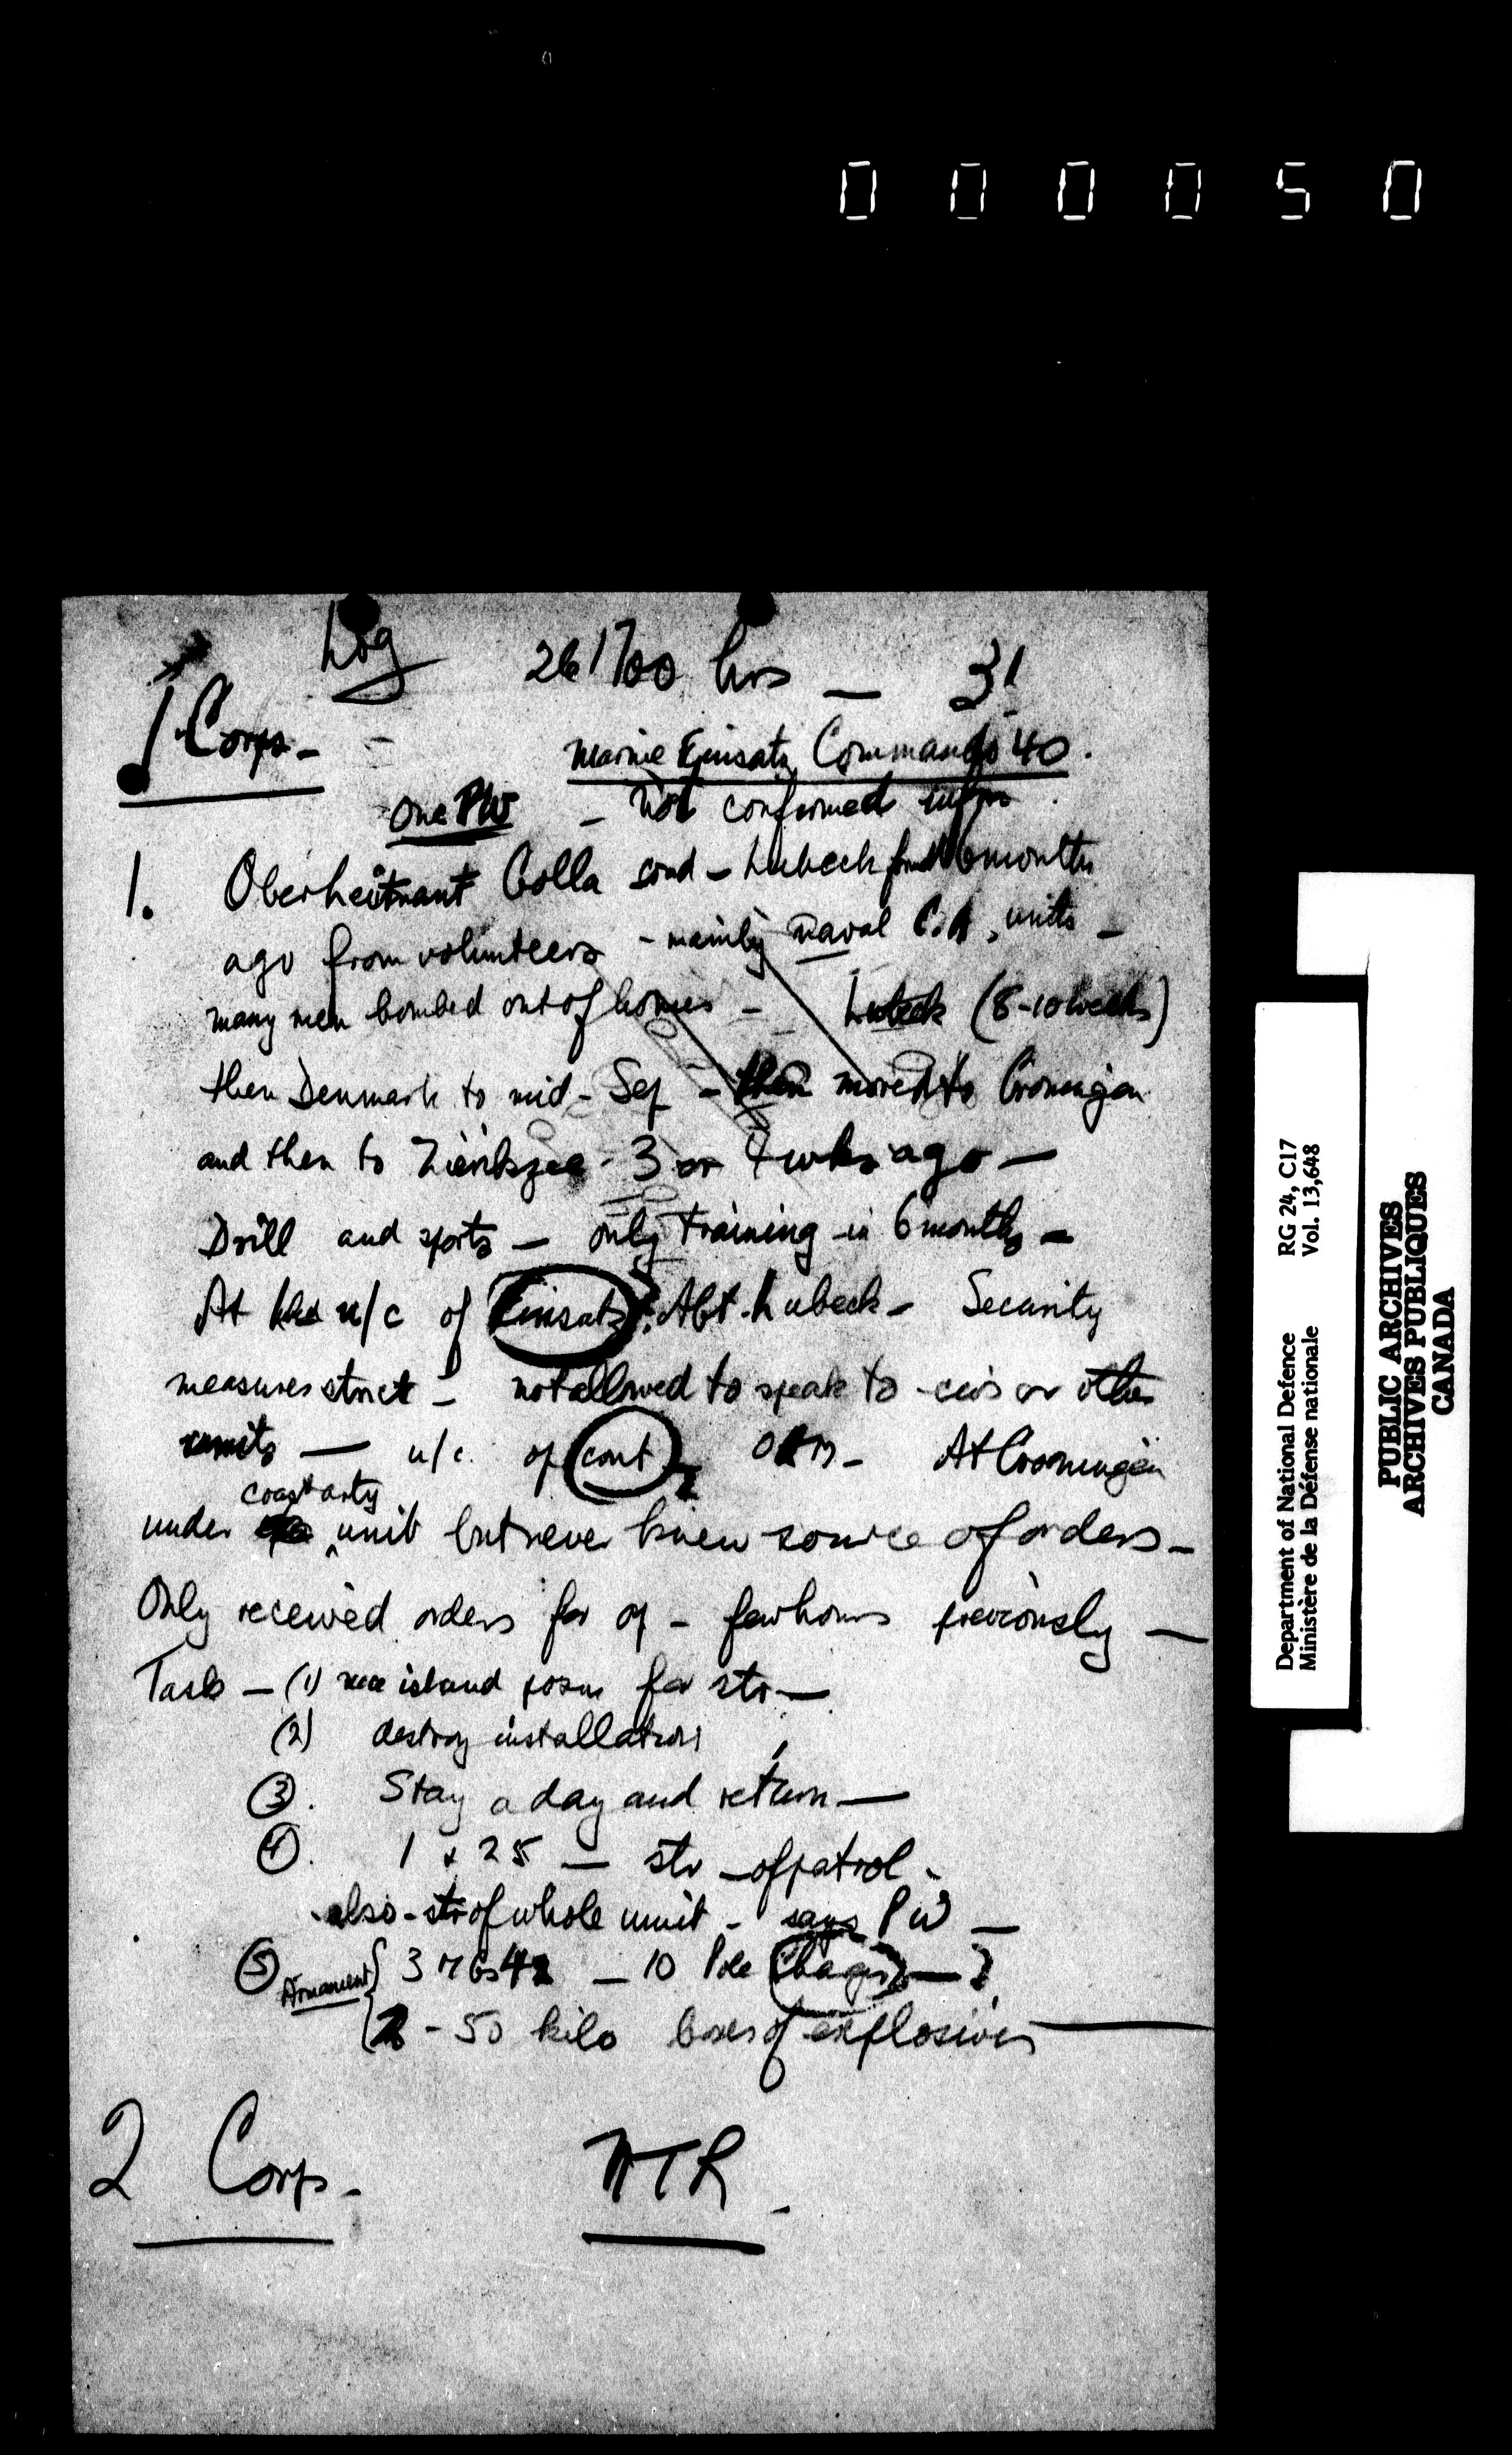 000050
Log 261700 hrs — 31
1 Corps — Marine Einsatz Commando 40.
One PW — Not confirmed infm
1. Oberleutnant Colla comd — Lubeck formed 6 months
ago from volunteers — mainly naval C.A. units —
many men bombed out of homes — Lubeck (8-10 weeks)
then Denmark to mid-Sep — then moved to Groningen
and then to Zierikzee 3 or 4 wks ago —
Drill and sports — only training in 6 months —
At u/c of Einsatz ? Abt. Lubeck — Security
measures strict — not allowed to speak to civs or other
units — u/c of cont ? At Groningen
under coast arty unit but never knew source of orders —
Only received orders for op — few hours previously —
Task — (1) rece island posns for str —
(2) destroy installations
(3). Stay a day and return —
(4). 1 x 25 — str — of patrol —
also — str of whole unit — says PW —
(5) Armament { 3 MGs 42 — 10 Pole Chages — ?
2 - 50 kilo boxes of explosives —
2 Corps — NTR —
Department of National Defence RG 24, C17
Ministère de la Défense nationale Vol. 13,648
PUBLIC ARCHIVES
ARCHIVES PUBLIQUES
CANADA